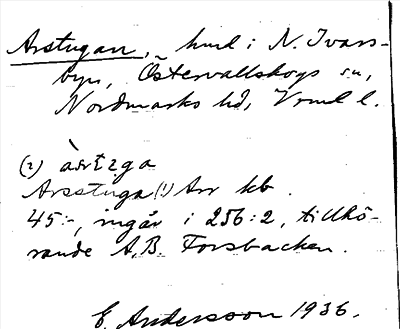 Arstugan, hmd i N. Ivars-
byn, Östervallskogs sn,
Nordmarks hd, Vrml l.
(2) 
Arsstuga (!) Arr kb
45:-, ingår i 256:2, tillhö-
rande A.B. Forsbacken.
E. Andersson 1936.